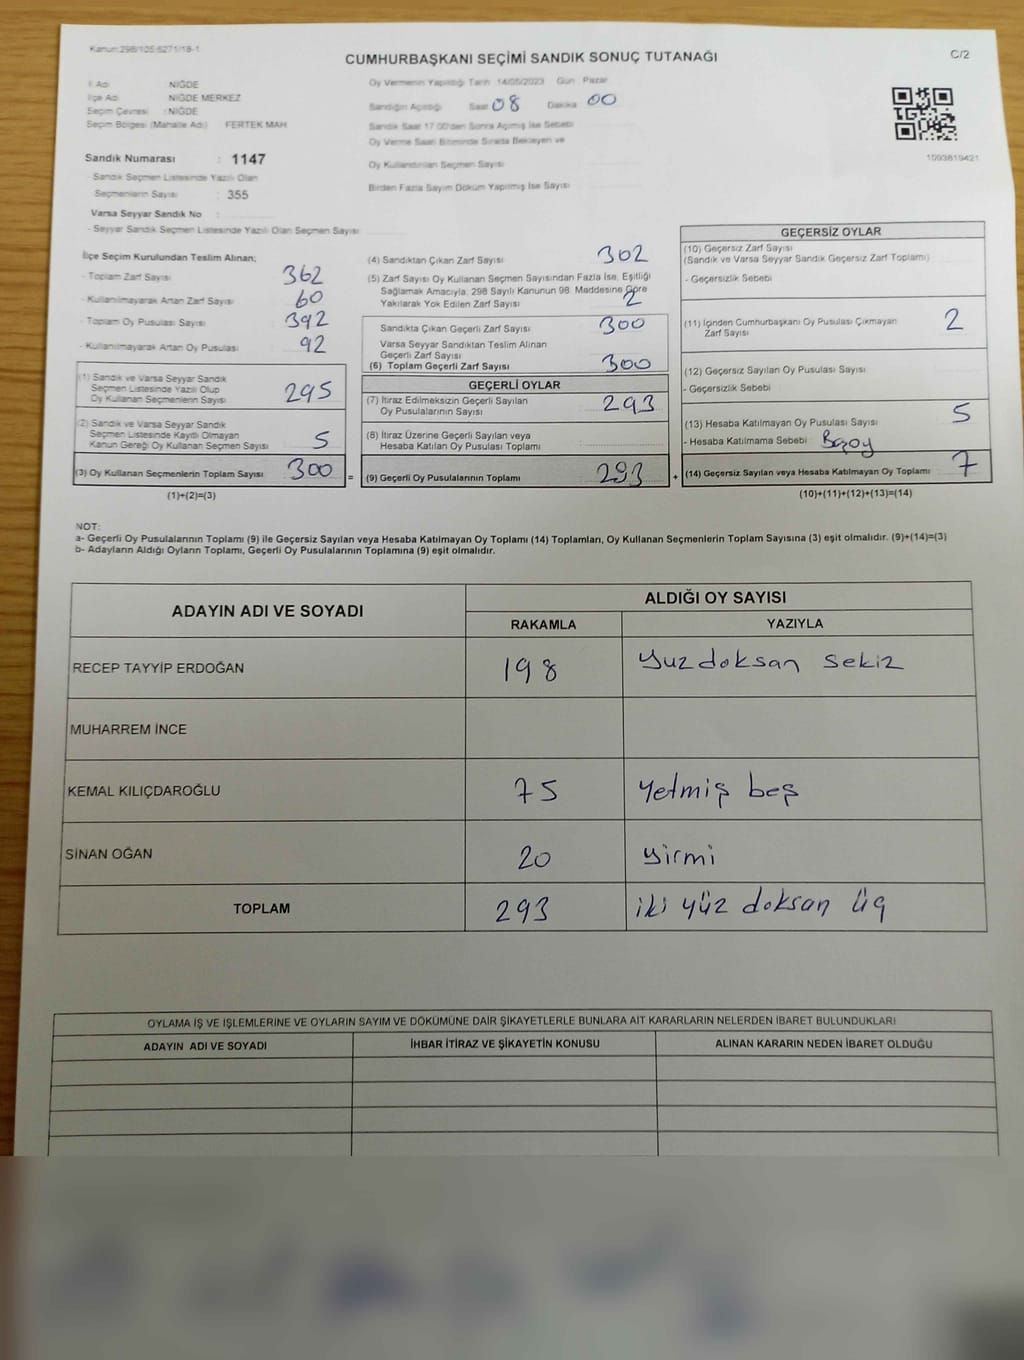 Kanun:298/105,6271/18-1
CUMHURBAŞKANI SEÇİMİ SANDIK SONUÇ TUTANAĞI
C/2
İl Adı : NİĞDE
İlçe Adı : NİĞDE MERKEZ
Seçim Çevresi : NİĞDE
Seçim Bölgesi (Mahalle Adı) FERTEK MAH
Oy Vermenin Yapıldığı Tarih 14/05/2023 Gün Pazar
Sandığın Açıldığı Saat 08 Dakika 00
Sandık Saat 17.00'den Sonra Açılmış İse Sebebi
Oy Verme Saati Bitiminde Sırada Bekleyen ve
Oy Kullandırılan Seçmen Sayısı
Birden Fazla Sayım Döküm Yapılmış İse Sayısı
1093819421
Sandık Numarası : 1147
- Sandık Seçmen Listesinde Yazılı Olan
Seçmenlerin Sayısı : 355
Varsa Seyyar Sandık No :
- Seyyar Sandık Seçmen Listesinde Yazılı Olan Seçmen Sayısı
İlçe Seçim Kurulundan Teslim Alınan;
- Toplam Zarf Sayısı 362
- Kullanılmayarak Artan Zarf Sayısı 60
- Toplam Oy Pusulası Sayısı 392
- Kullanılmayarak Artan Oy Pusulası 92
(1) Sandık ve Varsa Seyyar Sandık
Seçmen Listesinde Yazılı Olup
Oy Kullanan Seçmenlerin Sayısı 295
(2) Sandık ve Varsa Seyyar Sandık
Seçmen Listesinde Kayıtlı Olmayan
Kanun Gereği Oy Kullanan Seçmen Sayısı 5
(3) Oy Kullanan Seçmenlerin Toplam Sayısı 300 =
(1)+(2)=(3)
(4) Sandıktan Çıkan Zarf Sayısı 302
(5) Zarf Sayısı Oy Kullanan Seçmen Sayısından Fazla İse, Eşitliği
Sağlamak Amacıyla, 298 Sayılı Kanunun 98. Maddesine Göre
Yakılarak Yok Edilen Zarf Sayısı 2
Sandıkta Çıkan Geçerli Zarf Sayısı 300
Varsa Seyyar Sandıktan Teslim Alınan
Geçerli Zarf Sayısı
(6) Toplam Geçerli Zarf Sayısı 300
GEÇERLİ OYLAR
(7) İtiraz Edilmeksizin Geçerli Sayılan
Oy Pusulalarının Sayısı 293
(8) İtiraz Üzerine Geçerli Sayılan veya
Hesaba Katılan Oy Pusulası Toplamı
(9) Geçerli Oy Pusulalarının Toplamı 293 +
GEÇERSİZ OYLAR
(10) Geçersiz Zarf Sayısı
(Sandık ve Varsa Seyyar Sandık Geçersiz Zarf Toplamı)
- Geçersizlik Sebebi
(11) İçinden Cumhurbaşkanı Oy Pusulası Çıkmayan
Zarf Sayısı 2
(12) Geçersiz Sayılan Oy Pusulası Sayısı
- Geçersizlik Sebebi
(13) Hesaba Katılmayan Oy Pusulası Sayısı 5
- Hesaba Katılmama Sebebi
(14) Geçersiz Sayılan veya Hesaba Katılmayan Oy Toplamı 7
(10)+(11)+(12)+(13)=(14)
NOT:
a- Geçerli Oy Pusulalarının Toplamı (9) ile Geçersiz Sayılan veya Hesaba Katılmayan Oy Toplamı (14) Toplamları, Oy Kullanan Seçmenlerin Toplam Sayısına (3) eşit olmalıdır. (9)+(14)=(3)
b- Adayların Aldığı Oyların Toplamı, Geçerli Oy Pusulalarının Toplamına (9) eşit olmalıdır.
ADAYIN ADI VE SOYADI
ALDIĞI OY SAYISI
RAKAMLA YAZIYLA
RECEP TAYYİP ERDOĞAN 198 yuzdoksan sekiz
MUHARREM İNCE
KEMAL KILIÇDAROĞLU 75 yetmiş beş
SİNAN OĞAN 20 yirmi
TOPLAM 293 iki yüz doksan üç
OYLAMA İŞ VE İŞLEMLERİNE VE OYLARIN SAYIM VE DÖKÜMÜNE DAİR ŞİKAYETLERLE BUNLARA AİT KARARLARIN NELERDEN İBARET BULUNDUKLARI
ADAYIN ADI VE SOYADI İHBAR İTİRAZ VE ŞİKAYETİN KONUSU ALINAN KARARIN NEDEN İBARET OLDUĞU